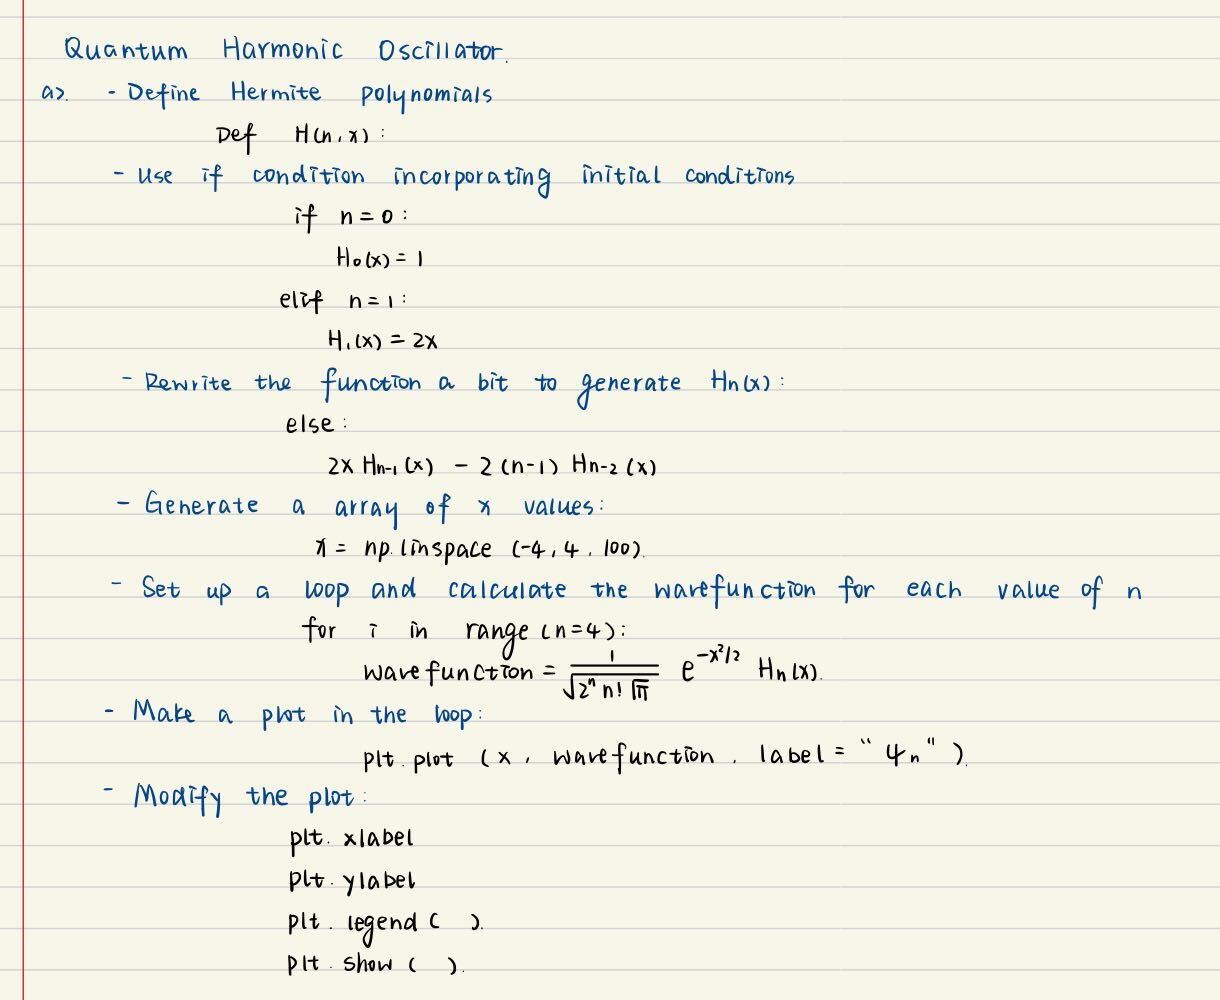 Quantum Harmonic Oscillator.
a). - Define Hermite polynomials
Def H(n,x):
- Use if condition incorporating initial conditions
if n=0:
H₀(x)=1
elif n=1:
H₁(x)=2x
- Rewrite the function a bit to generate Hn(x):
else:
2x Hn-1(x) - 2(n-1) Hn-2(x)
- Generate a array of x values:
x = np.linspace (-4, 4, 100).
- Set up a loop and calculate the wavefunction for each value of n
for i in range (n=4):
wavefunction = 1/√(2ⁿ n! √π) e^(-x²/2) Hn(x).
- Make a plot in the loop:
plt.plot (x, wavefunction, label = "ψn").
- Modify the plot:
plt.xlabel
plt.ylabel
plt.legend( ).
plt.show( ).